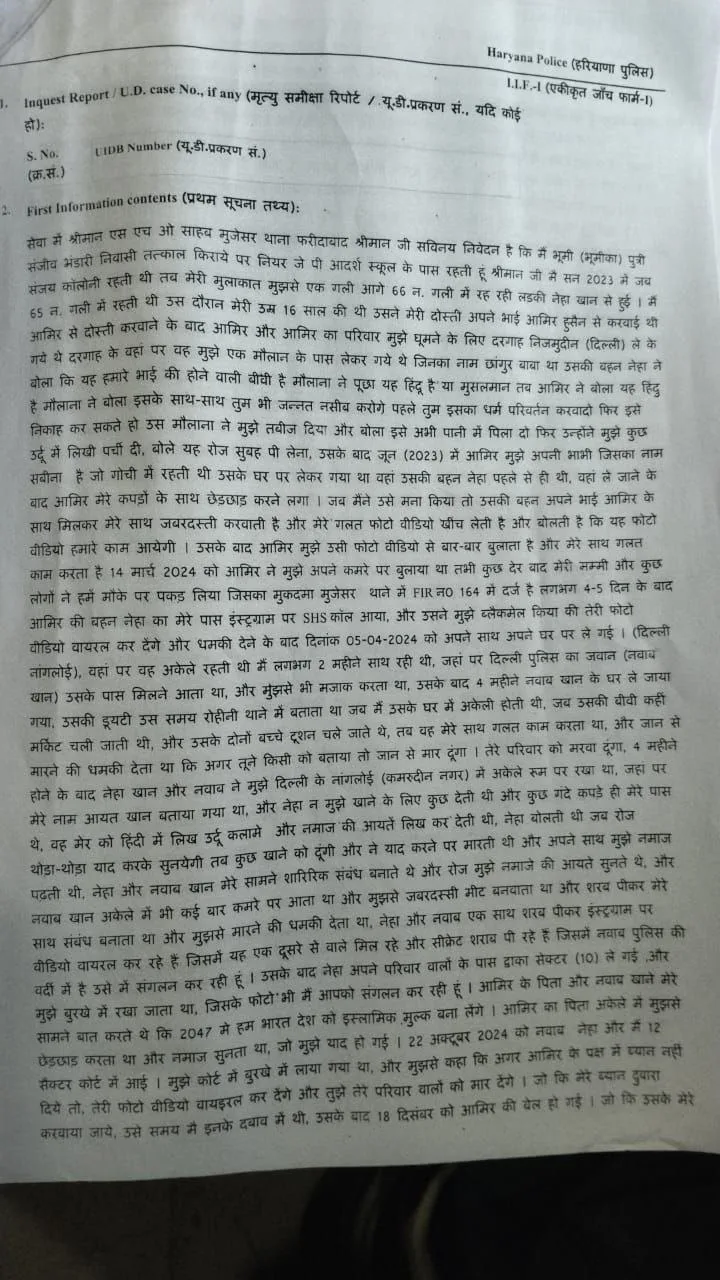 Haryana Police (हरियाणा पुलिस)
I.I.F.-I (एकीकृत जाँच फार्म-I)
1. Inquest Report / U.D. case No., if any (मृत्यु समीक्षा रिपोर्ट / यू.डी.प्रकरण सं., यदि कोई
हो):
S. No. UIDB Number (यू.डी.प्रकरण सं.)
(क्र.सं.)
2. First Information contents (प्रथम सूचना तथ्य):
सेवा में श्रीमान एस एच ओ साहब मुजेसर थाना फरीदाबाद श्रीमान जी सविनय निवेदन है कि मैं भूमी (भूमीका) पुत्री
संजीव भंडारी निवासी तत्काल किराये पर नियर जे पी आदर्श स्कूल के पास रहती हूं श्रीमान जी मै सन 2023 में जब
संजय कॉलोनी रहती थी तब मेरी मुलाकात मुझसे एक गली आगे 66 न. गली में रह रही लडकी नेहा खान से हुई । मैं
65 न. गली में रहती थी उस दौरान मेरी उम्र 16 साल की थी उसने मेरी दोस्ती अपने भाई आमिर हुसैन से करवाई थी
आमिर से दोस्ती करवाने के बाद आमिर और आमिर का परिवार मुझे घूमने के लिए दरगाह निजमुदीन (दिल्ली) ले के
गये थे दरगाह के वहां पर वह मुझे एक मौलान के पास लेकर गये थे जिनका नाम छांगुर बाबा था उसकी बहन नेहा ने
बोला कि यह हमारे भाई की होने वाली बीवी है मौलाना ने पूछा यह हिंदू है या मुसलमान तब आमिर ने बोला यह हिंदु
है मौलाना ने बोला इसके साथ-साथ तुम भी जन्नत नसीब करोगे पहले तुम इसका धर्म परिवर्तन करवादो फिर इसे
निकाह कर सकते हो उस मौलाना ने मुझे तवीज दिया और बोला इसे अभी पानी में पिला दो फिर उन्होंने मुझे कुछ
उर्दू में लिखी पर्ची दी, बोले यह रोज सुबह पी लेना, उसके बाद जून (2023) में आमिर मुझे अपनी भाभी जिसका नाम
सबीना है जो गोची में रहती थी उसके घर पर लेकर गया था वहां उसकी बहन नेहा पहले से ही थी, वहां ले जाने के
बाद आमिर मेरे कपडों के साथ छेडछाड करने लगा । जब मैंने उसे मना किया तो उसकी बहन अपने भाई आमिर के
साथ मिलकर मेरे साथ जबरदस्ती करवाती है और मेरे गलत फोटो वीडियो खीच लेती है और बोलती है कि यह फोटो
वीडियो हमारे काम आयेगी । उसके बाद आमिर मुझे उसी फोटो वीडियो से बार-बार बुलाता है और मेरे साथ गलत
काम करता है 14 मार्च 2024 को आमिर ने मुझे अपने कमरे पर बुलाया था तभी कुछ देर बाद मेरी मम्मी और कुछ
लोगों ने हमें मौके पर पकड़ लिया जिसका मुकदमा मुजेसर थाने में FIR न0 164 में दर्ज है लगभग 4-5 दिन के बाद
आमिर की बहन नेहा का मेरे पास इंस्ट्रग्राम पर SHS कॉल आया, और उसने मुझे ब्लैकमेल किया की तेरी फोटो
वीडियो वायरल कर देंगे और धमकी देने के बाद दिनांक 05-04-2024 को अपने साथ अपने घर पर ले गई । (दिल्ली
नांगलोई), वहां पर वह अकेले रहती थी मैं लगभग 2 महीने साथ रही थी, जहां पर दिल्ली पुलिस का जवान (नवाब
खान) उसके पास मिलने आता था, और मुंझसे भी मजाक करता था, उसके बाद 4 महीने नवाब खान के घर ले जाया
गया, उसकी डूयटी उस समय रोहीनी थाने में बताता था जब मैं उसके घर में अकेली होती थी, जब उसकी बीवी कही
मर्किट चली जाती थी, और उसके दोनों बच्चे टूशन चले जाते थे, तब वह मेरे साथ गलत काम करता था, और जान से
मारने की धमकी देता था कि अगर तूने किसी को बताया तो जान से मार दूंगा । तेरे परिवार को मरवा दूंगा, 4 महीने
होने के बाद नेहा खान और नवाब ने मुझे दिल्ली के नांगलोई (कमरुदीन नगर) में अकेले रूम पर रखा था, जहां पर
मेरे नाम आयत खान बताया गया था, और नेहा न मुझे खाने के लिए कुछ देती थी और कुछ गंदे कपडे ही मेरे पास
थे, वह मेर को हिंदी में लिख उर्दू कलामे और नमाज की आयतें लिख कर देती थी, नेहा बोलती थी जब रोज
थोडा-थोडा याद करके सुनयेगी तब कुछ खाने को दूंगी और ने याद करने पर मारती थी और अपने साथ मुझे नमाज
पढती थी, नेहा और नवाब खान मेरे सामने शारिरिक संबंध बनाते थे और रोज मुझे नमाजे की आयते सुनते थे, और
नवाब खान अकेले में भी कई बार कमरे पर आता था और मुझसे जबरदस्सी मीट बनवाता था और शरब पीकर मेरे
साथ संबंध बनाता था और मुझसे मारने की धमकी देता था, नेहा और नवाब एक साथ शरब पीकर इंस्ट्रग्राम पर
वीडियो वायरल कर रहे हैं जिसमें यह एक दूसरे से वाले मिल रहे और सीक्रेट शराब पी रहे हैं जिसमें नवाब पुलिस की
वर्दी में है उसे में संगलन कर रही हूं । उसके बाद नेहा अपने परिवार वालों के पास ढाका सेक्टर (10) ले गई ,और
मुझे बुरखे में रखा जाता था, जिसके फोटो भी मैं आपको संगलन कर रही हूं । आमिर के पिता और नवाब खाने मेरे
सामने बात करते थे कि 2047 मे हम भारत देश को इस्लामिक मुल्क बना लेंगे । आमिर का पिता अकेले में मुझसे
छेडछाड करता था और नमाज सुनता था, जो मुझे याद हो गई । 22 अक्टूबर 2024 को नवाब नेहा और मैं 12
सैक्टर कोर्ट में आई । मुझे कोर्ट में बुरखे में लाया गया था, और मुझसे कहा कि अगर आमिर के पक्ष में ब्यान नहीं
दिये तो, तेरी फोटो वीडियो वायइरल कर देंगे और तुझे तेरे परिवार वालों को मार देंगे । जो कि मेरे ब्यान दुबारा
करवाया जाये, उसे समय मै इनके दबाव में थी, उसके बाद 18 दिसंबर को आमिर की बेल हो गई । जो कि उसके मेरे